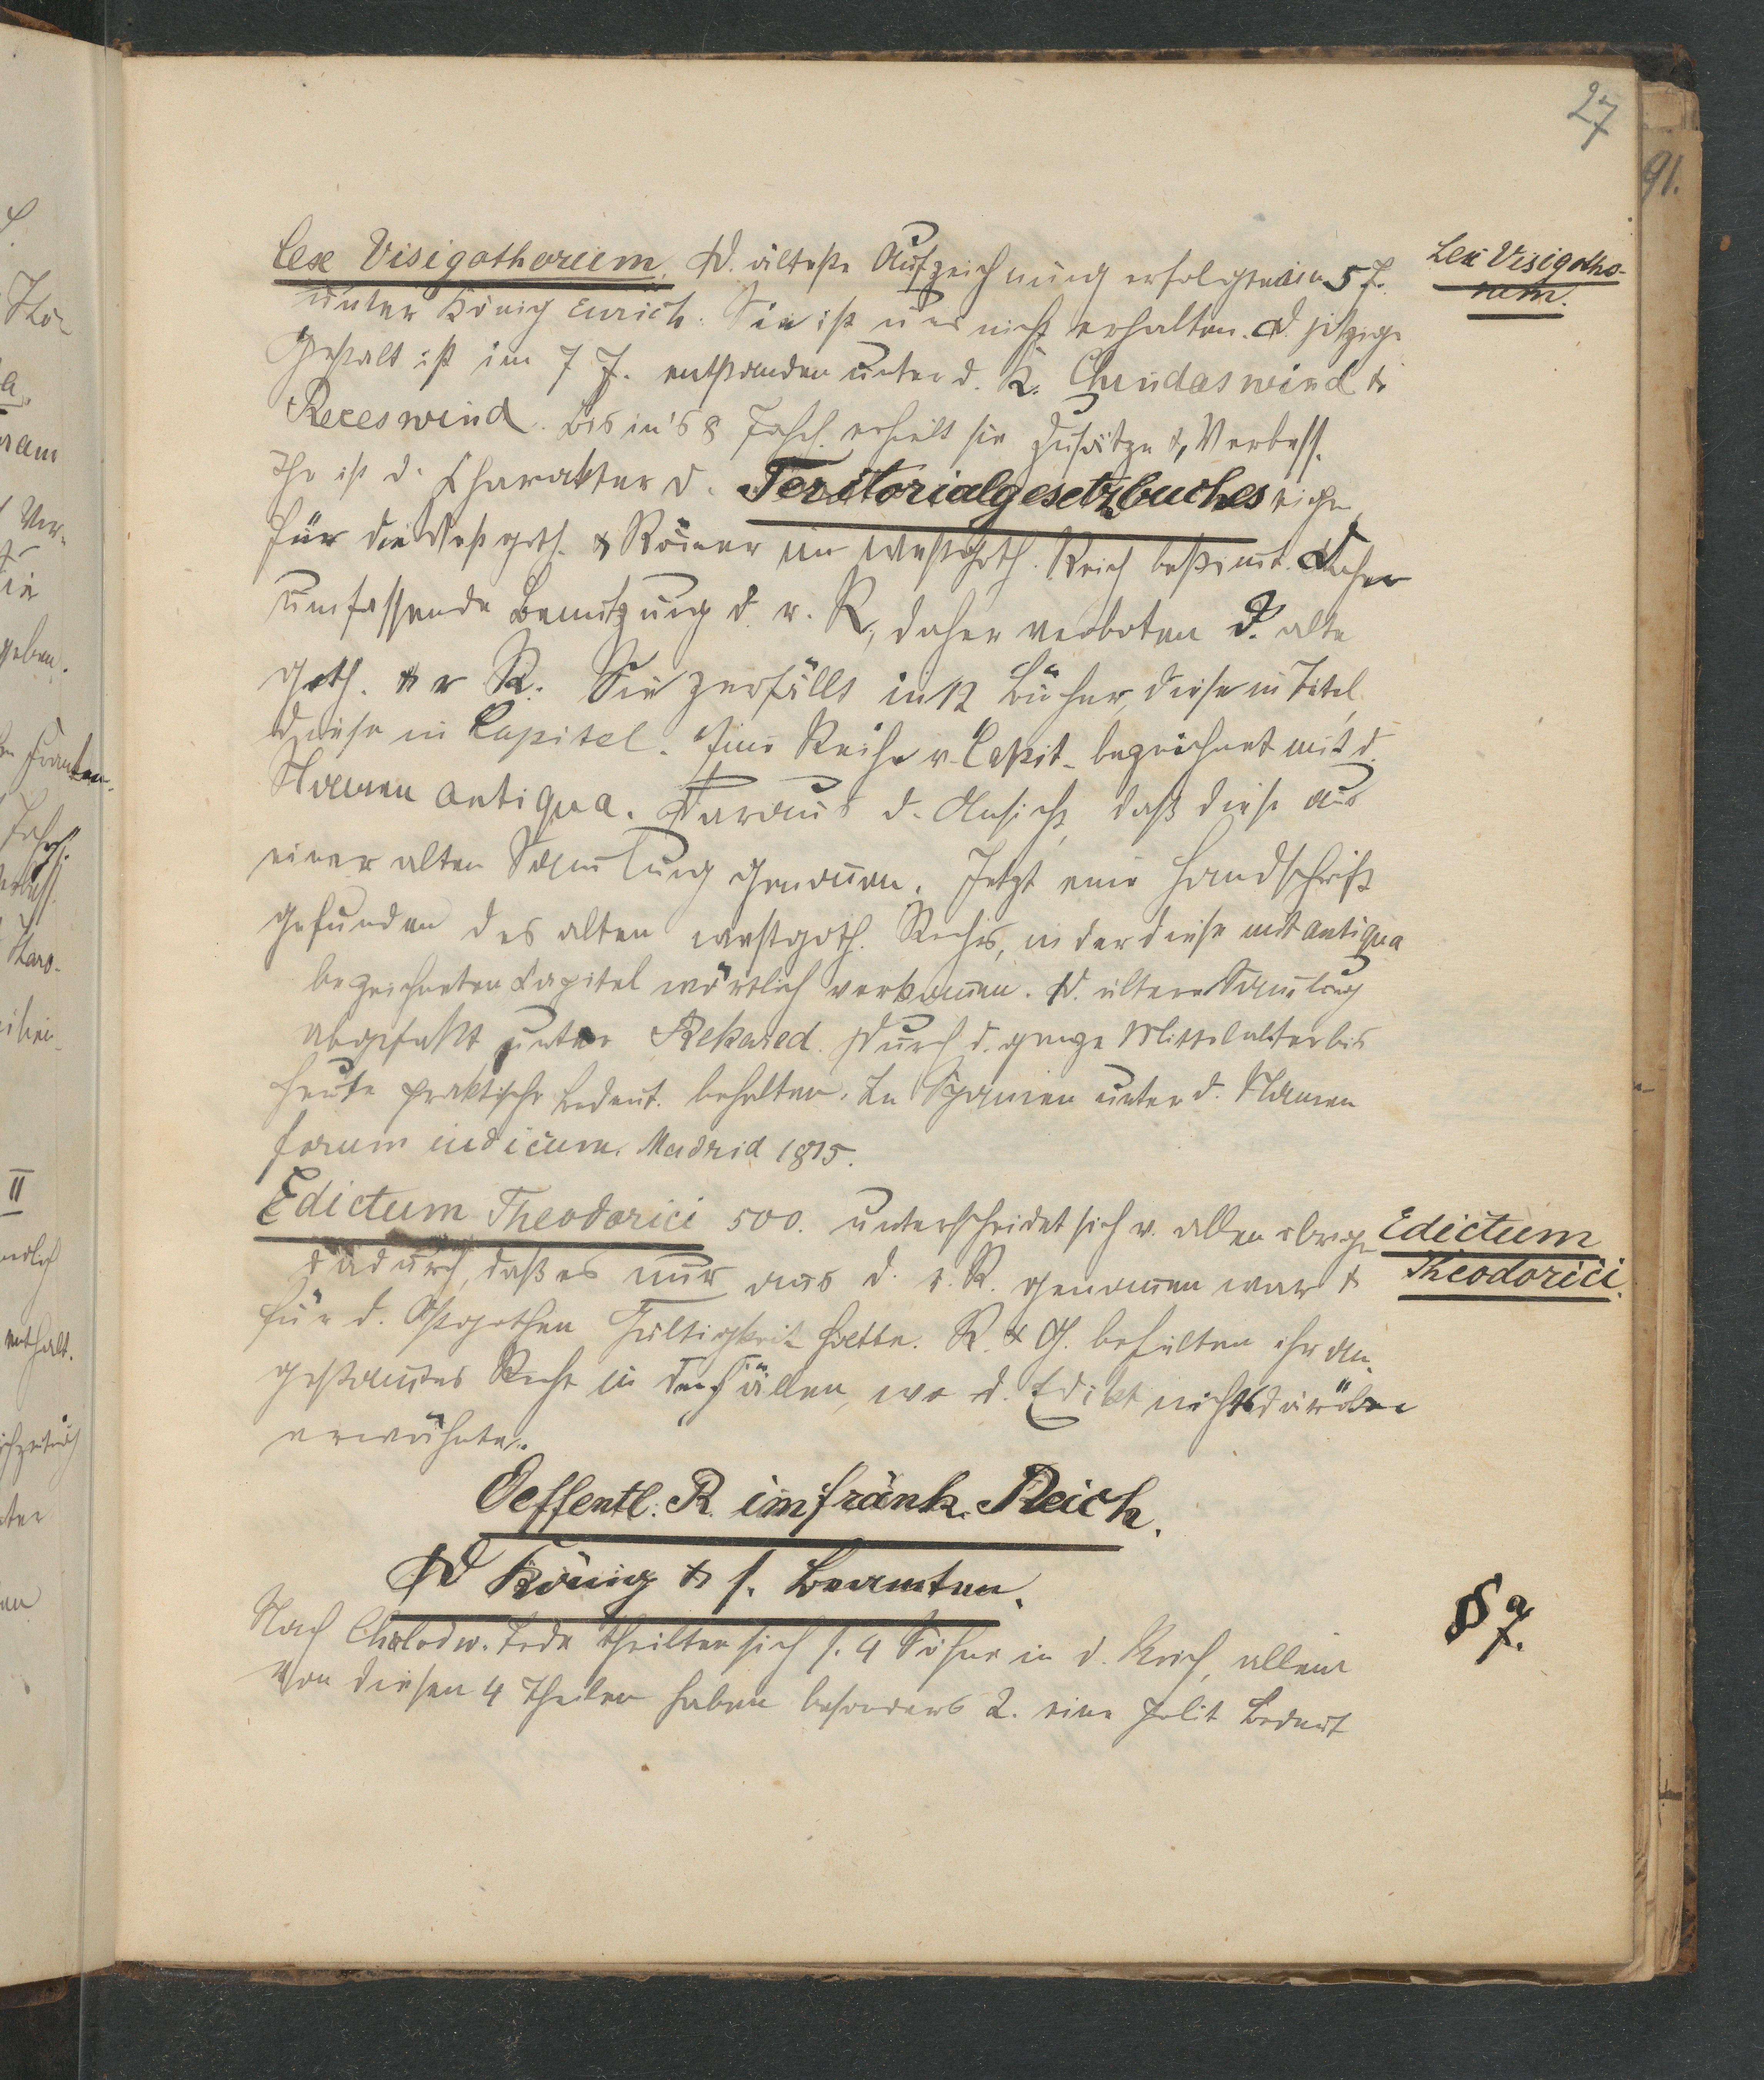 27
91.
Lex Visigothorum. D. älteste Aufzeichnung erfolgte im 5 J.
Lex Visigotho-
rum.
unter König Eurich. Sie ist uns nicht erhalten. D. jetzige
Gestalt ist im 7 J. entstanden unter d. K. Chindaswind &
Receswind. Bis in's 8 Jahrh. erhielt sie Zusätze & Verbess.
Ihr ist d. Charakter d. Territorialgesetzbuches eigen,
für die Westgoth. & Römer im westgoth. Reich bestimt. Daher
umfassende Benutzung d. r. R., daher verboten d. alte
goth. & r R. Sie zerfällt in 12 Bücher, diese in Titel,
diese in Capitel. Eine Reihe v. Capit. bezeichnet mit d.
Namen antiqua. Daraus d. Ansicht, daß diese aus
einer alten Samlung genomen. Jetzt eine Handschrift
gefunden des alten westgoth. Rechts, in der diese mit antiqua
bezeichneten Capitel wörtlich vorkomen. D. ältere Samlung
abgefaßt unter Rekared. Durch d. ganze Mittelalter bis
heute praktische Bedeut. behalten. In Spanien unter d. Namen
forum iudicum. Madrid 1815.
Edictum Theodorici 500. unterscheidet sich v. allen übrigen
Edictum
Theodorici.
dadurch, daß es nur aus d. r. R. genomen war &
für d. Ostgothen Gültigkeit hatte. R. & G. behielten ihr an-
gestamtes Recht in den Fällen, wo d. Edikt nichts darüber
erwähnte.
Oeffentl. R. im fränk. Reich.
D König & s. Beamten.
§ 9.
Nach Chlodw. Tode theilten sich s. 4 Söhne in d. Reich, allein
von diesen 4 Theilen haben besonders 2. eine polit Bedeut